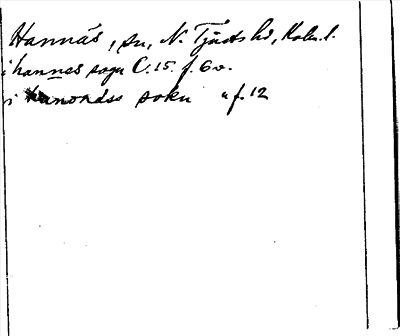 Hannäs, sn, N. Tjusts hd, Kalm. l.
i hannes sogu C. 15. f. 6 v.
i hanonäss soku " f. 12